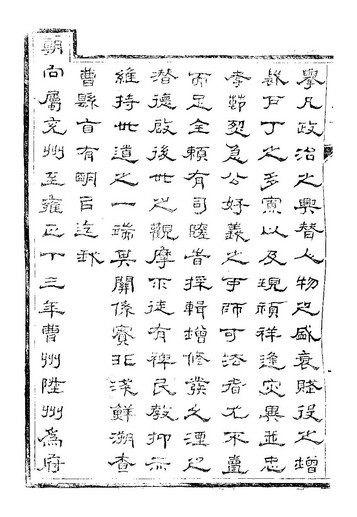 舉凡政治之興替人物之盛衰賦役之增
耗戶丁之多寡以及現禎祥逢災異並忠
孝節烈急公好義之事師可法者尤不壹
而足全賴有司隨旹採輯增修發久湮之
潛德啟後世之觀摩不徒有裨民教抑亦
維持世道之一端其關係實非淺鮮溯查
曹縣自有明㠯迄我
朝向屬兗州至雍正十三年曹州陞州為府